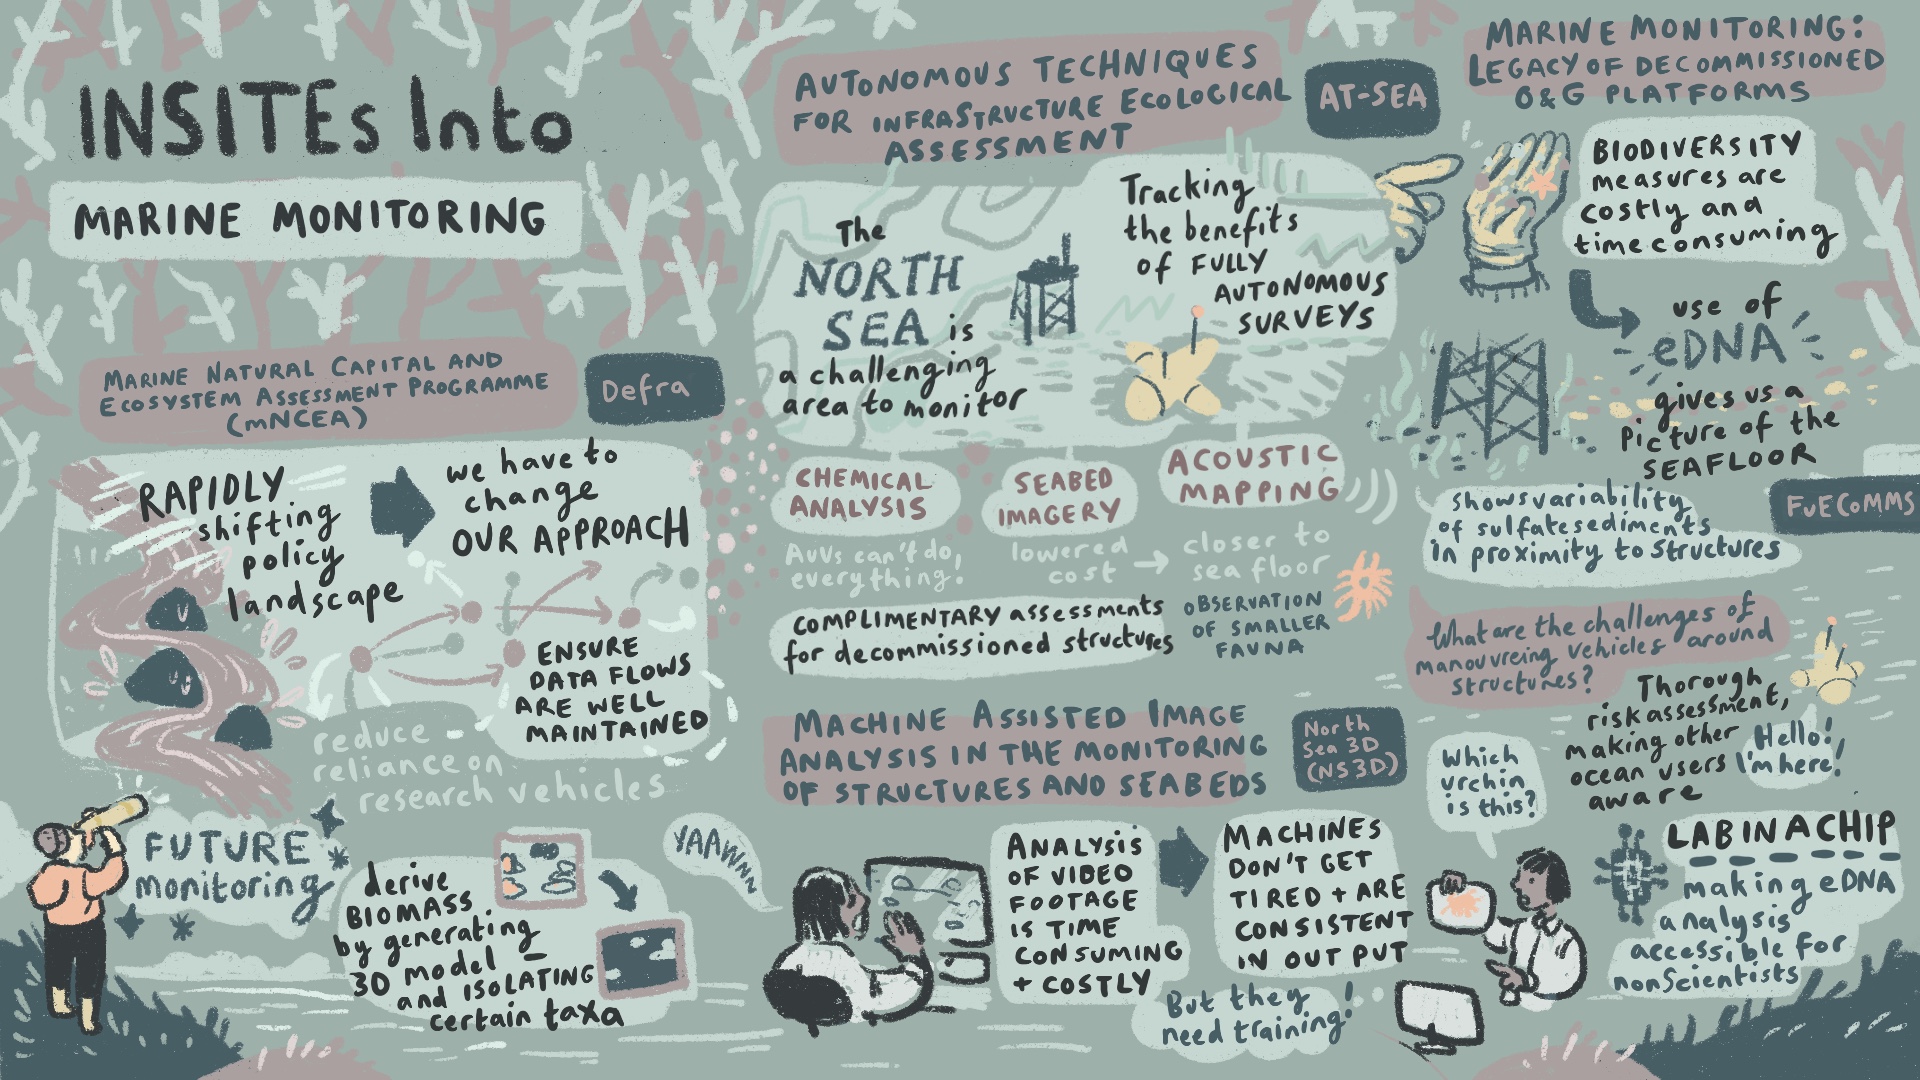 INSITEs Into
MARINE MONITORING
MARINE NATURAL CAPITAL AND
ECOSYSTEM ASSESSMENT PROGRAMME
(mNCEA)
Defra
RAPIDLY
shifting
policy
landscape
we have to
change
OUR APPROACH
ENSURE
DATA FLOWS
ARE WELL
MAINTAINED
reduce
reliance on
research vehicles
FUTURE
monitoring
derive
BIOMASS
by generating
3D model –
and ISOLATING
certain taxa
AUTONOMOUS TECHNIQUES
FOR INFRASTRUCTURE ECOLOGICAL
ASSESSMENT
AT-SEA
The
NORTH
SEA is
a challenging
area to monitor
Tracking
the benefits
of FULLY
AUTONOMOUS
SURVEYS
CHEMICAL
ANALYSIS
SEABED
IMAGERY
ACOUSTIC
MAPPING
AUVs can't do,
everything!
lowered
cost
→
closer to
sea floor
COMPLIMENTARY assessments
for decommissioned structures
OBSERVATION
OF SMALLER
FAUNA
MACHINE ASSISTED IMAGE
ANALYSIS IN THE MONITORING
OF STRUCTURES AND SEABEDS
North
Sea 3D
(NS3D)
YAAWNN
ANALYSIS
OF VIDEO
FOOTAGE
IS TIME
CONSUMING
+ COSTLY
MACHINES
DON'T GET
TIRED + ARE
CONSISTENT
IN OUT PUT
But they
need training!
MARINE MONITORING:
LEGACY OF DECOMMISSIONED
O&G PLATFORMS
BIODIVERSITY
measures are
costly and
time consuming
use of
eDNA
gives us a
picture of the
SEAFLOOR
FuEComms
shows variability
of sulfate sediments
in proximity to structures
What are the challenges of
manouvreing vehicles around
structures?
Thorough
risk assessment,
making other
ocean users
aware
Hello!
I'm here!
Which
urchin
is this?
LAB IN A CHIP
making eDNA
analysis
accessible for
nonScientists